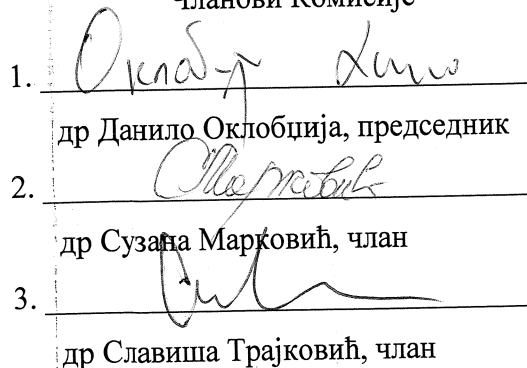 Чланови Комисије
1.
др Данило Оклобџија, председник
2.
др Сузана Марковић, члан
3.
др Славиша Трајковић, члан